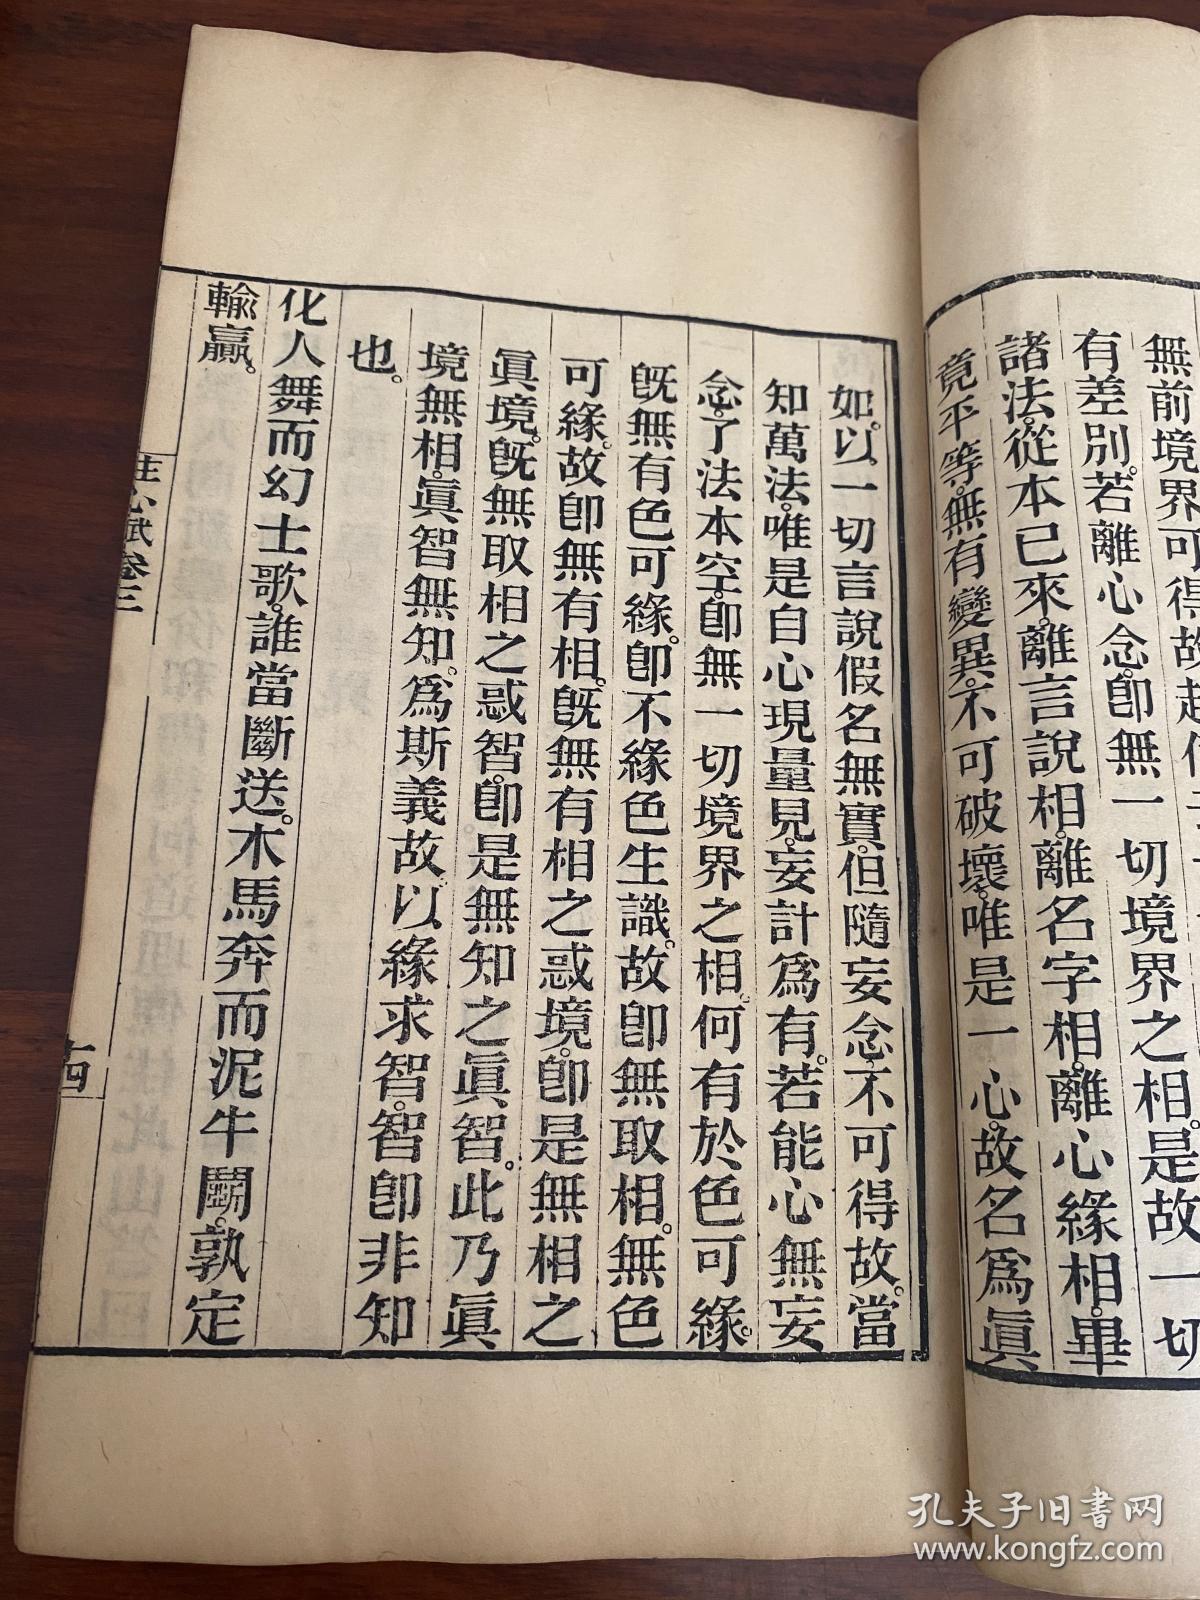 無前境界可得故起信
有差別。若離心念。即無一切境界之相。是故一切
諸法。從本已來。離言說相。離名字相。離心緣相。畢
竟平等。無有變異。不可破壞。唯是一心。故名爲眞
如。以一切言說假名無實。但隨妄念。不可得故。當
知萬法。唯是自心現量見。妄計爲有。若能心無妄
念。了法本空。卽無一切境界之相。何有於色可緣。
旣無有色可緣。卽不緣色生識。故卽無取相。無色
可緣。故卽無有相。旣無有相之惑境。卽是無相之
眞境。旣無取相之惑智。卽是無知之眞智。此乃眞
境無相。眞智無知。爲斯義故。以緣求智。智卽非知
也。
化人舞而幻士歌。誰當斷送。木馬奔而泥牛鬬。孰定
輸贏。
註心賦卷三
十四
孔夫子旧書网
www.kongfz.com